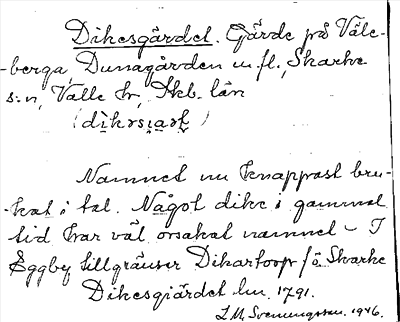 Dikesgärdet. Gärde på Väle-
-berga, Dunagården m. fl., Skarke
s:n, Valle hd, Skb. län
(
Namnet nu knappast bru-
-kat i tal. Något dike i gammal
tid har väl orsakat namnet – I
Eggby tillgränser Dikartorp / ö Skarke
Dikesgiärdet lm. 1791.
L. M. Svenungsson. 1946.